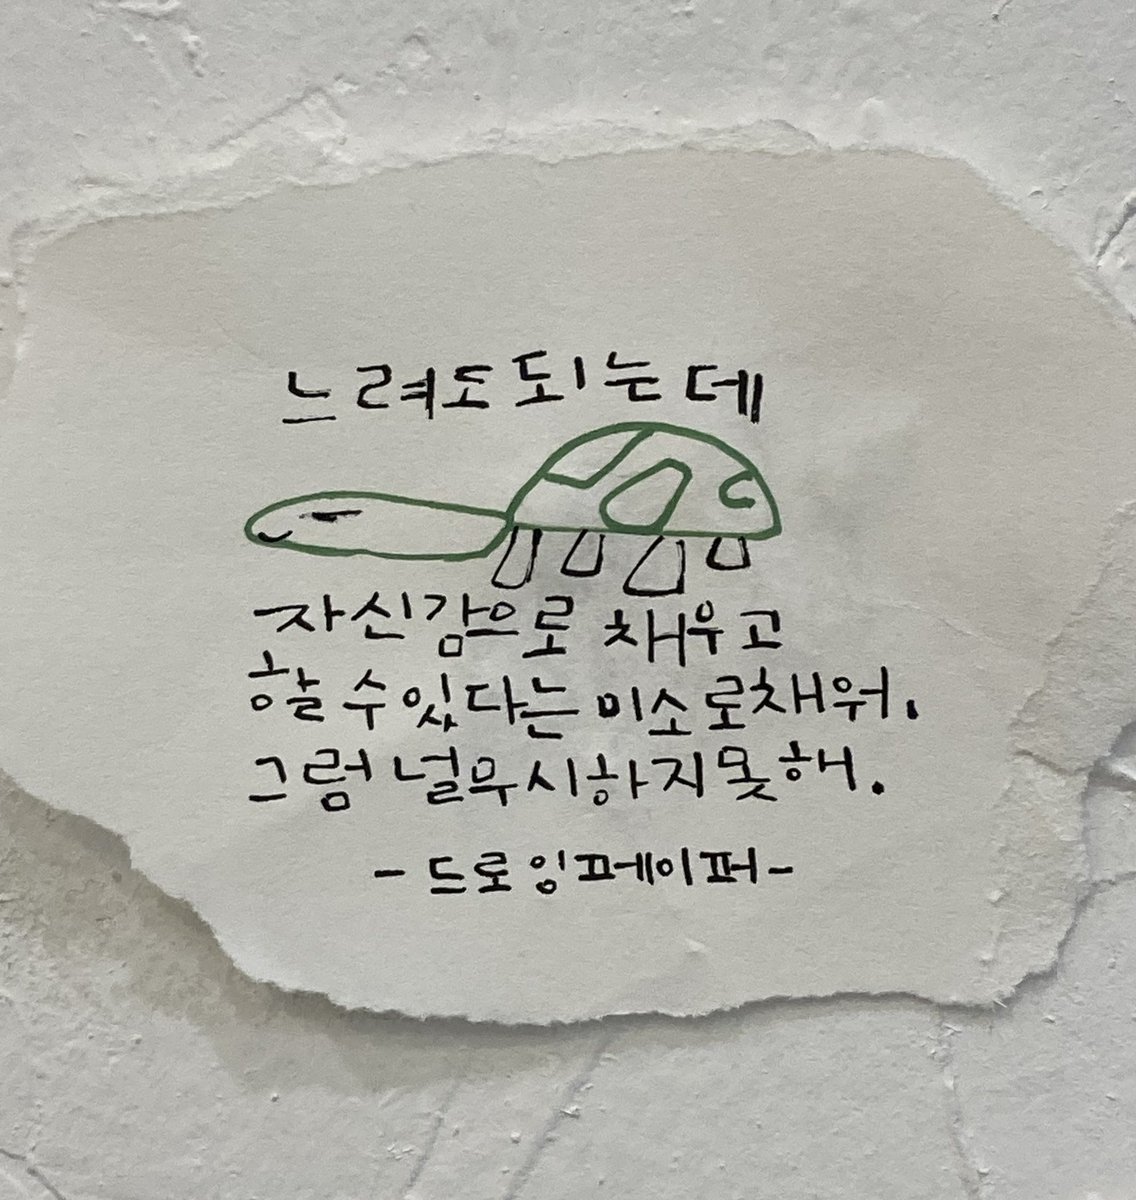 느려도 되는데
자신감으로 채우고
할 수 있다는 미소로 채워.
그럼 널 무시하지 못해.
- 드로잉페이퍼 -